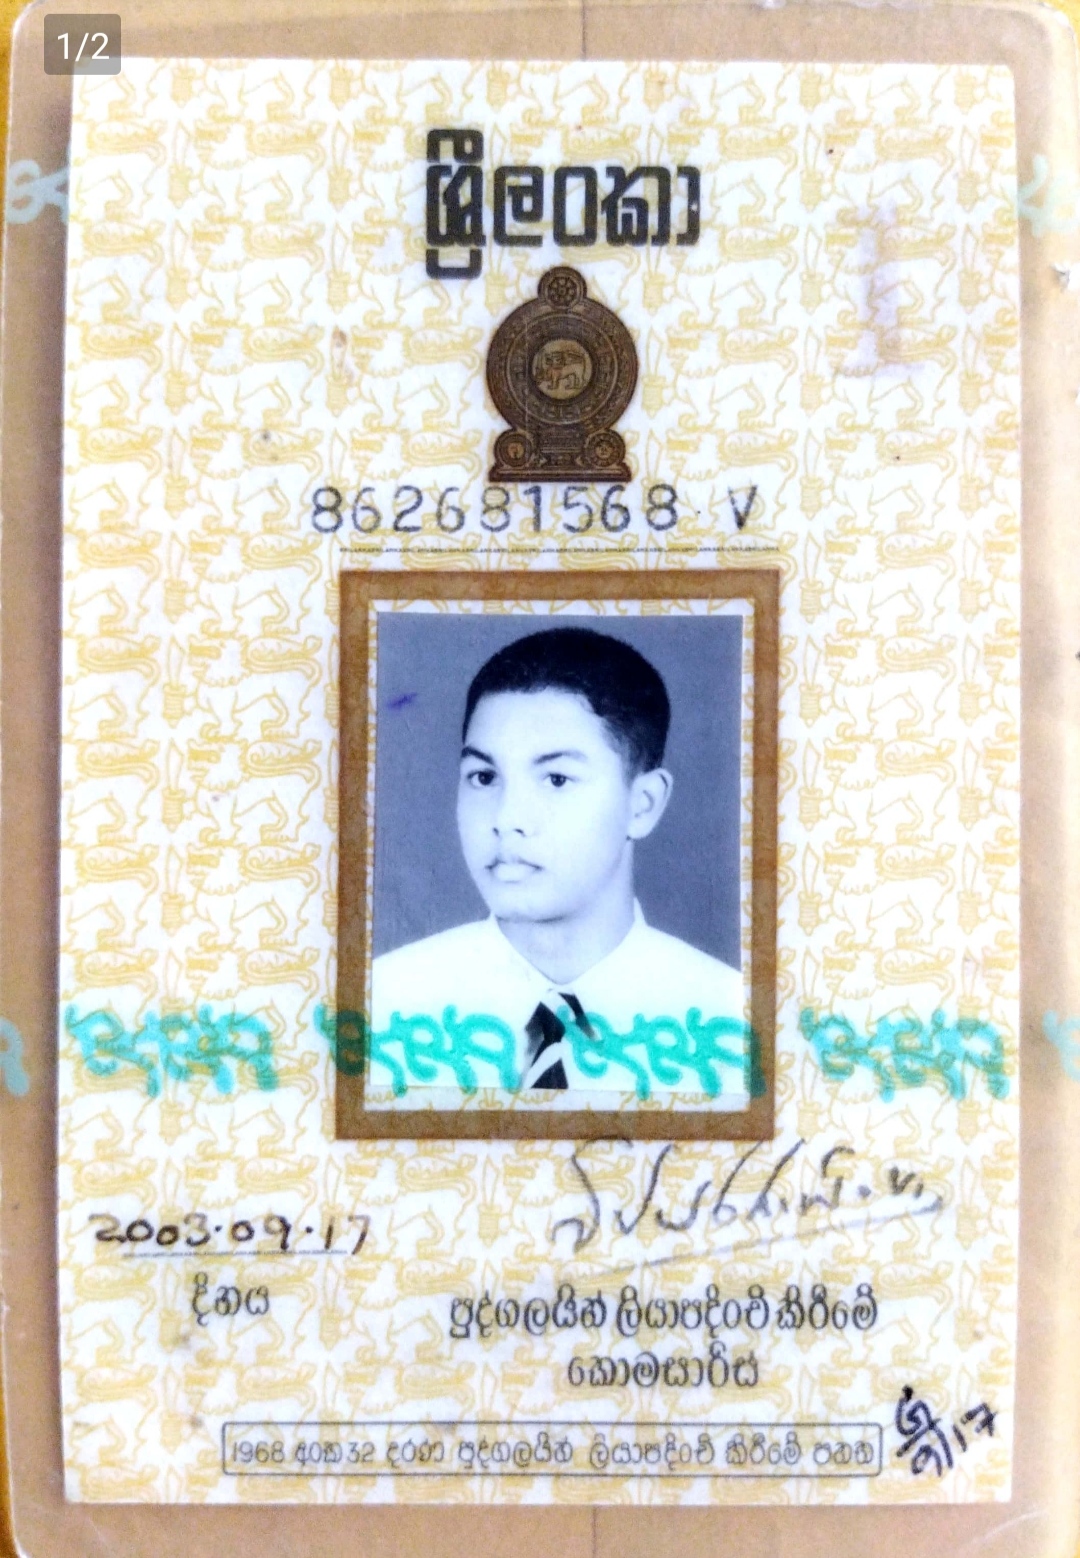 1/2
ශ්‍රී ලංකා
862681568 V
2003.09.17
දිනය
පුද්ගලයින් ලියාපදිංචි කිරීමේ
කොමසාරිස්
1968 අංක 32 දරණ පුද්ගලයින් ලියාපදිංචි කිරීමේ පනත